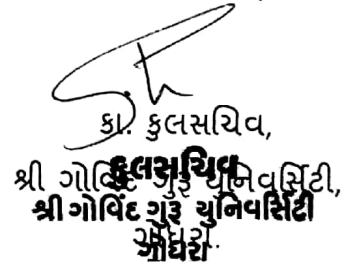 કા. કુલસચિવ,
કુલસચિવ
શ્રી ગોવિંદ ગુરૂ યુનિવર્સિટી,
શ્રી ગોવિંદ ગુરૂ યુનિવર્સિટી
ગોધરા.
ગોધરા